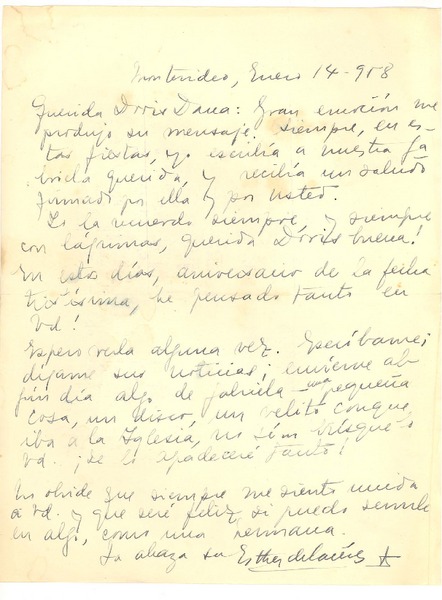 Montevideo, Enero 14-958
Querida Doris Dana: Gran emoción me
produjo su mensaje. Siempre, en es-
tas fiestas, yo escribía a nuestra Ga
briela querida, y recibía un saludo
firmado por ella y por usted.
La recuerdo siempre, y siempre
con lágrimas, querida Doris buena!
En estos días, aniversario de la fecha
tristísima, he pensado tanto en
Vd!
Espero verla alguna vez. Escríbame;
dígame sus noticias; envíeme al-
gún día algo de Gabriela una pequeña
cosa, un disco, un velito con que
iba a la Iglesia, no sé
Vd. ¡Se lo agradeceré tanto!
No olvide que siempre me siento unida
a Vd. y que seré feliz, si puedo servirle
en algo, como una hermana.
La abraza su Esther de Cáceres